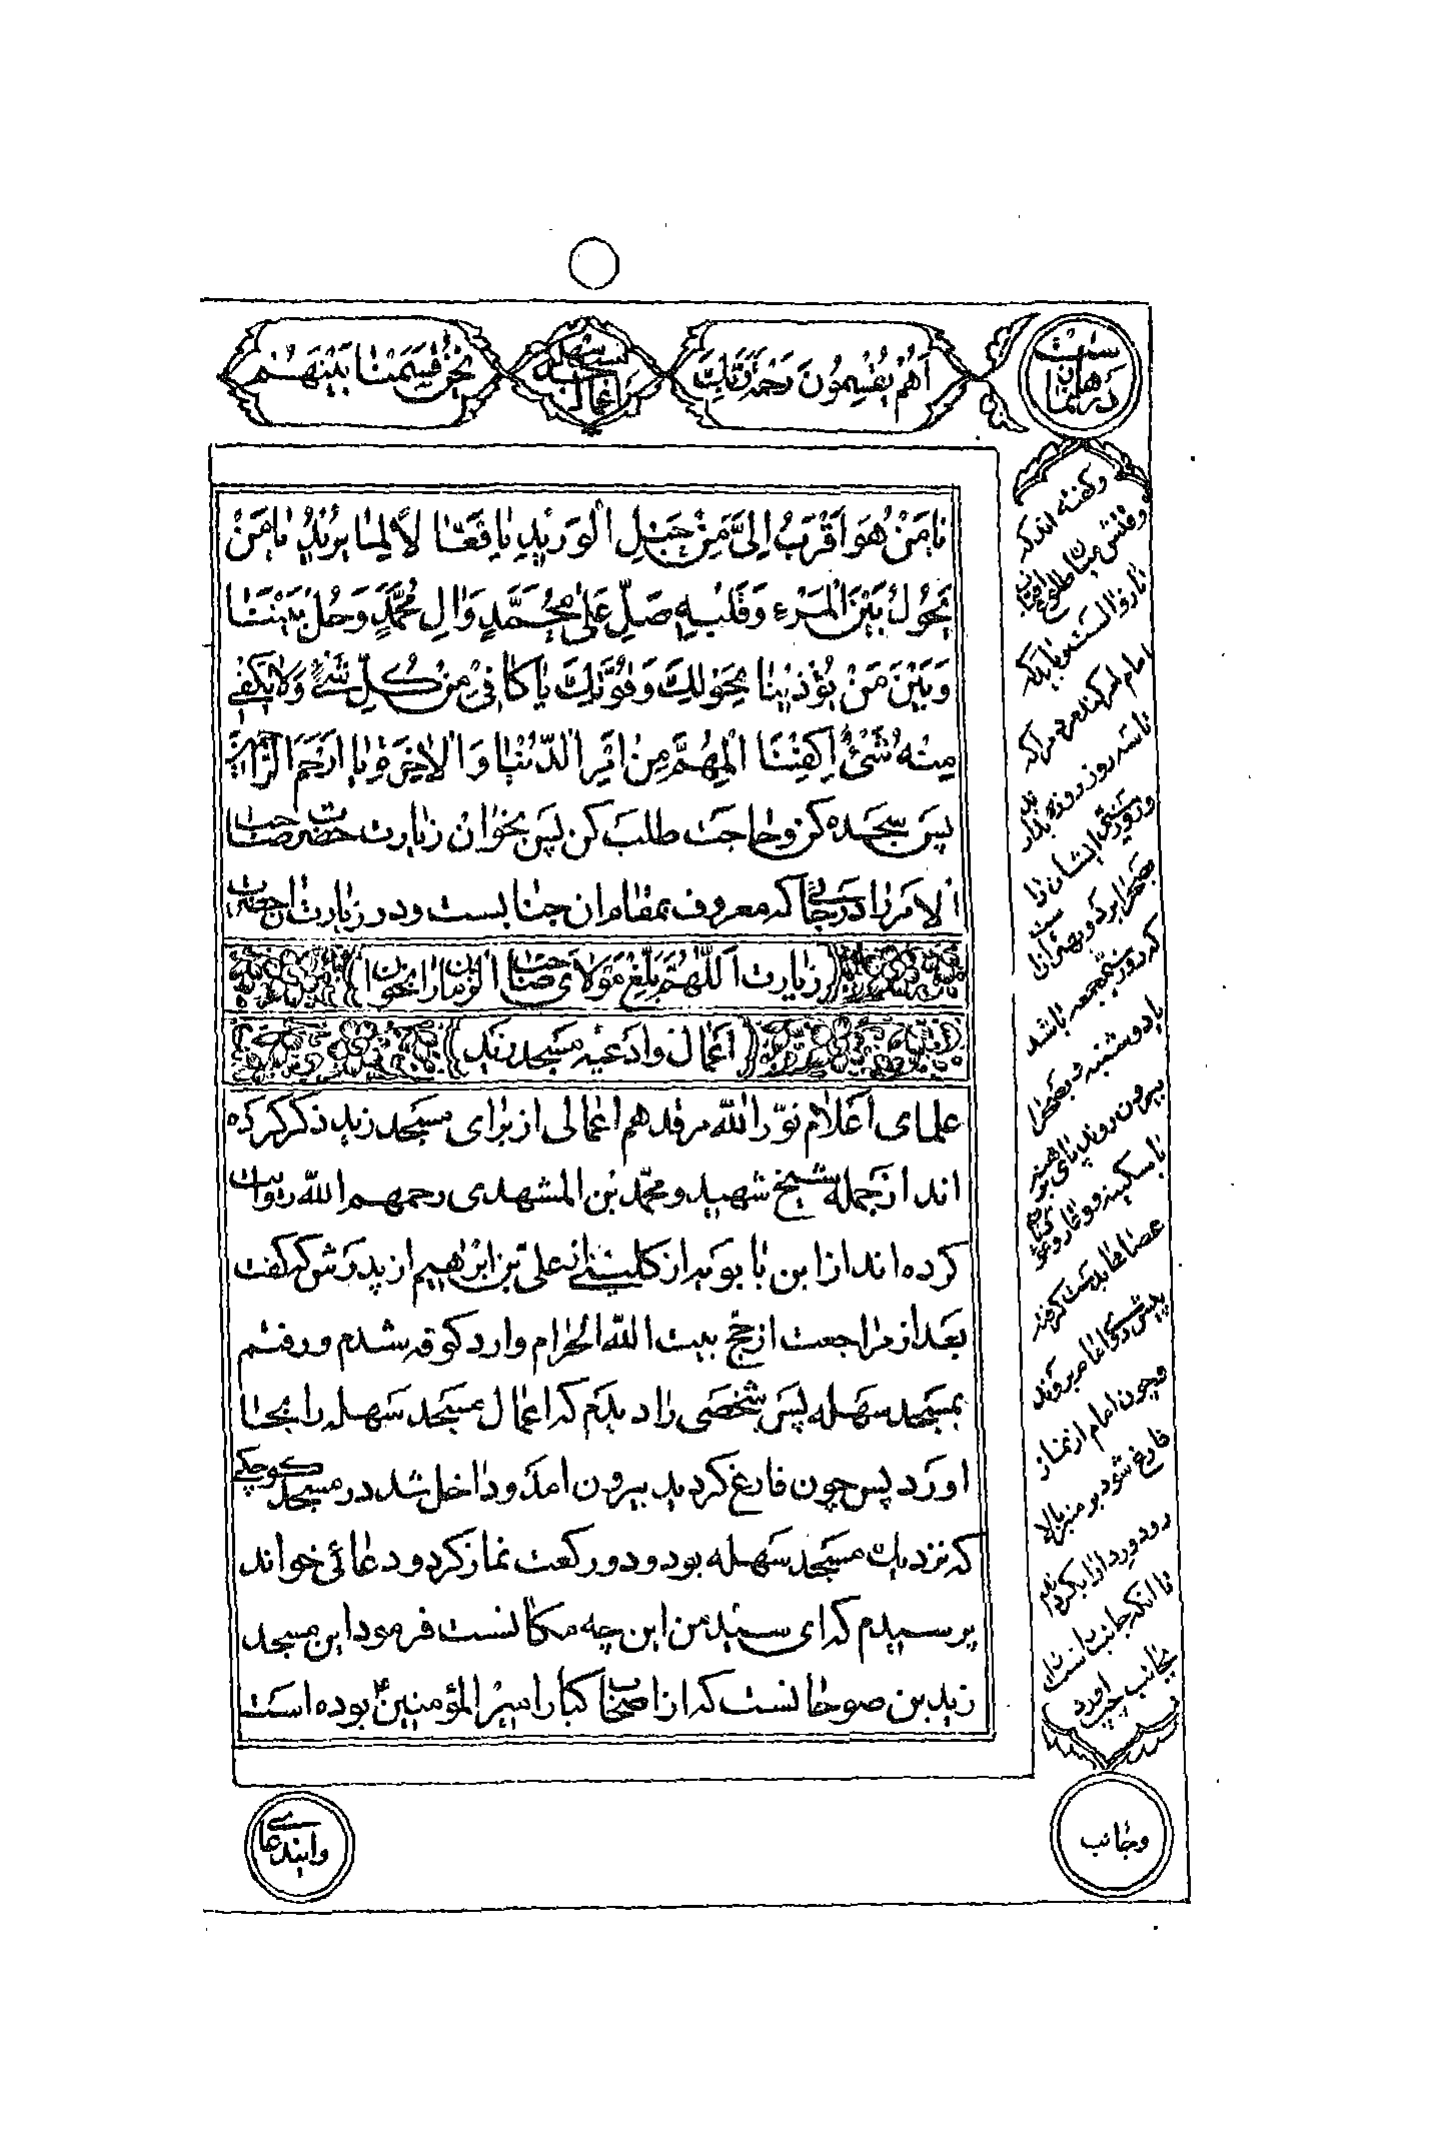 اَهُمْ يَقْسِمُونَ رَحْمَةَ رَبِّكَ
اعمال مسجد سهله
نَحْنُ قَسَمْنَا بَيْنَهُمْ
يٰا مَنْ هُوَ اَقْرَبُ اِلَيَّ مِنْ حَبْلِ الْوَرٖيدِ يٰا فَعّٰالاً لِمٰا يُرٖيدُ يٰا مَنْ
يَحُولُ بَيْنَ الْمَرْءِ وَقَلْبِهِ صَلِّ عَلىٰ مُحَمَّدٍ وَاٰلِ مُحَمَّدٍ وَحُلْ بَيْنَنٰا
وَبَيْنَ مَنْ يُؤْذٖينٰا بِحَوْلِكَ وَقُوَّتِكَ يٰا كٰافٖىْ مِنْ كُلِّ شَيْءٍ وَلاٰ يَكْفٖى
مِنْهُ شَيْءٌ اِكْفِنَا الْمُهِمَّ مِنْ اَمْرِ الدُّنْيٰا وَالْاٰخِرَةِ يٰا اَرْحَمَ الرّٰاحِمٖينَ
پس سجده كن و حاجت طلب كن پس بخوان زيارت حضرت صاحب
الامر را در جائى كه معروف بمقام ان جنابست و در زيارت انحضرت
زيارت اَللّٰهُمَّ بَلِّغْ مَوْلاٰىَ صاحب الزمان را بخوان
اعمال و ادعيه مسجد زيد
علماى اعلام نوّر الله مرقدهم اعمالى از براى مسجد زيد ذكر كرده
اند از جمله شيخ شهيد و محمّد بن المشهدى رحمهم الله روايت
كرده اند از ابن بابويه از كلينى از على بن ابرٰهيم از پدرش كه گفت
بعد از مراجعت از حج بيت الله الحرام وارد كوفه شدم و رفتم
بمسجد سهله پس شخصى را ديدم كه اعمال مسجد سهله را بجا
اورد پس چون فارغ گرديد بيرون امد و داخل شد در مسجد كوچكى
كه نزديك مسجد سهله بود و دو ركعت نماز كرد و دعائى خواند
پرسيدم كه اى سيد من اين چه مكانست فرمود اين مسجد
زيد بن صوحانست كه از اصحاب كبار امير المؤمنين ع بوده است
و گفته اند كه
وقتش بينا طلوع افتاب
تا زوالست و بايد كه
امام امر كند مردم را كه
تا سه روز روزه بدارند
و روز سيم ايشان را
بصحرا برد و بهتر انست
كه روز سيم جمعه باشد
يا دوشنبه و بصحرا
بيرون روند پاى برهنه
پيش روى امام بروند
و چون امام از نماز
فارغ شود بر منبر بالا
رود و ردا را بگرداند
تا انكه جانب راست را
بجانب چپ اورد
و جانب
و ايندعاى